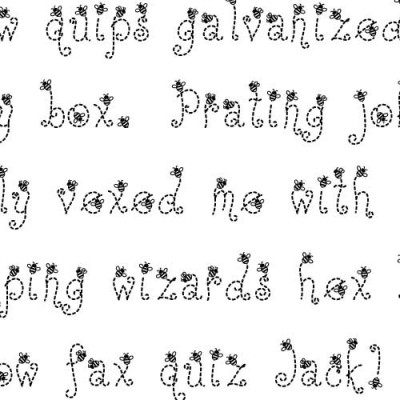 w quips galvanized
y box. Prating jo
ly vexed me with
ping wizards hex
ow fax quiz Jack!